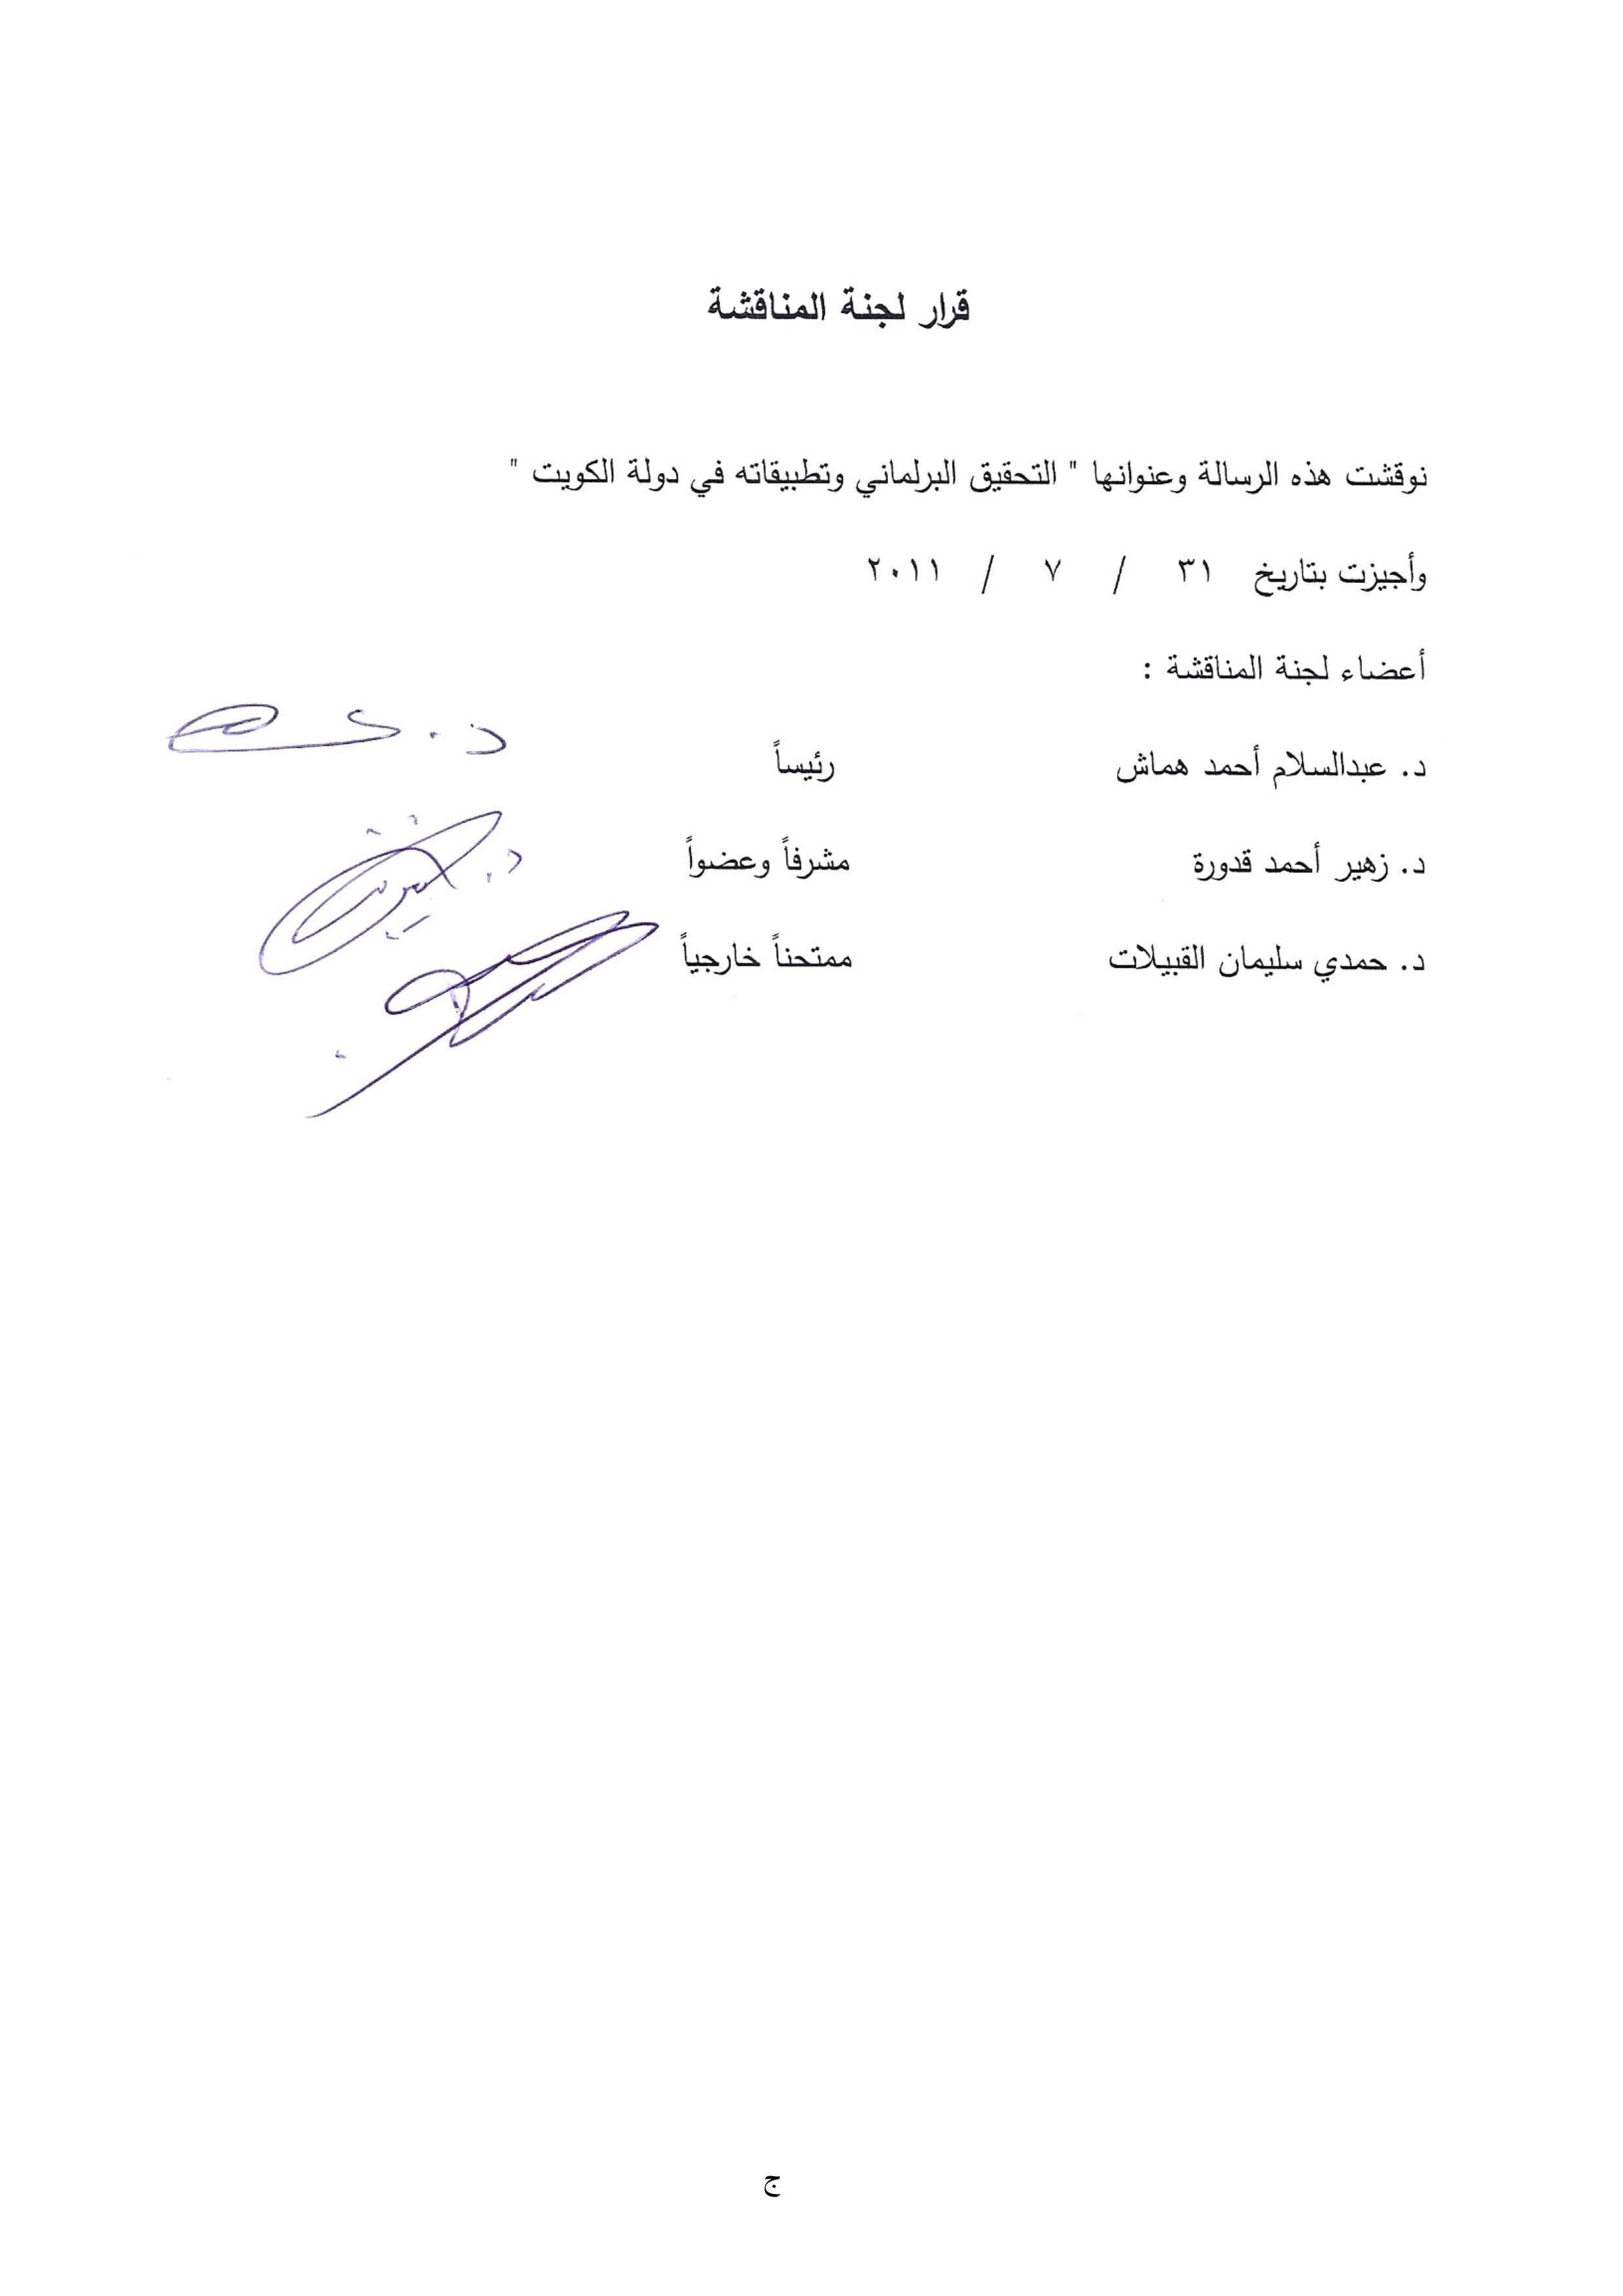 قرار لجنة المناقشة
نوقشت هذه الرسالة وعنوانها " التحقيق البرلماني وتطبيقاته في دولة الكويت "
وأجيزت بتاريخ ٣١ / ٧ / ٢٠١١
أعضاء لجنة المناقشة :
د. عبدالسلام أحمد هماش رئيساً د.
د. زهير أحمد قدورة مشرفاً وعضواً د.
د. حمدي سليمان القبيلات ممتحناً خارجياً
ج